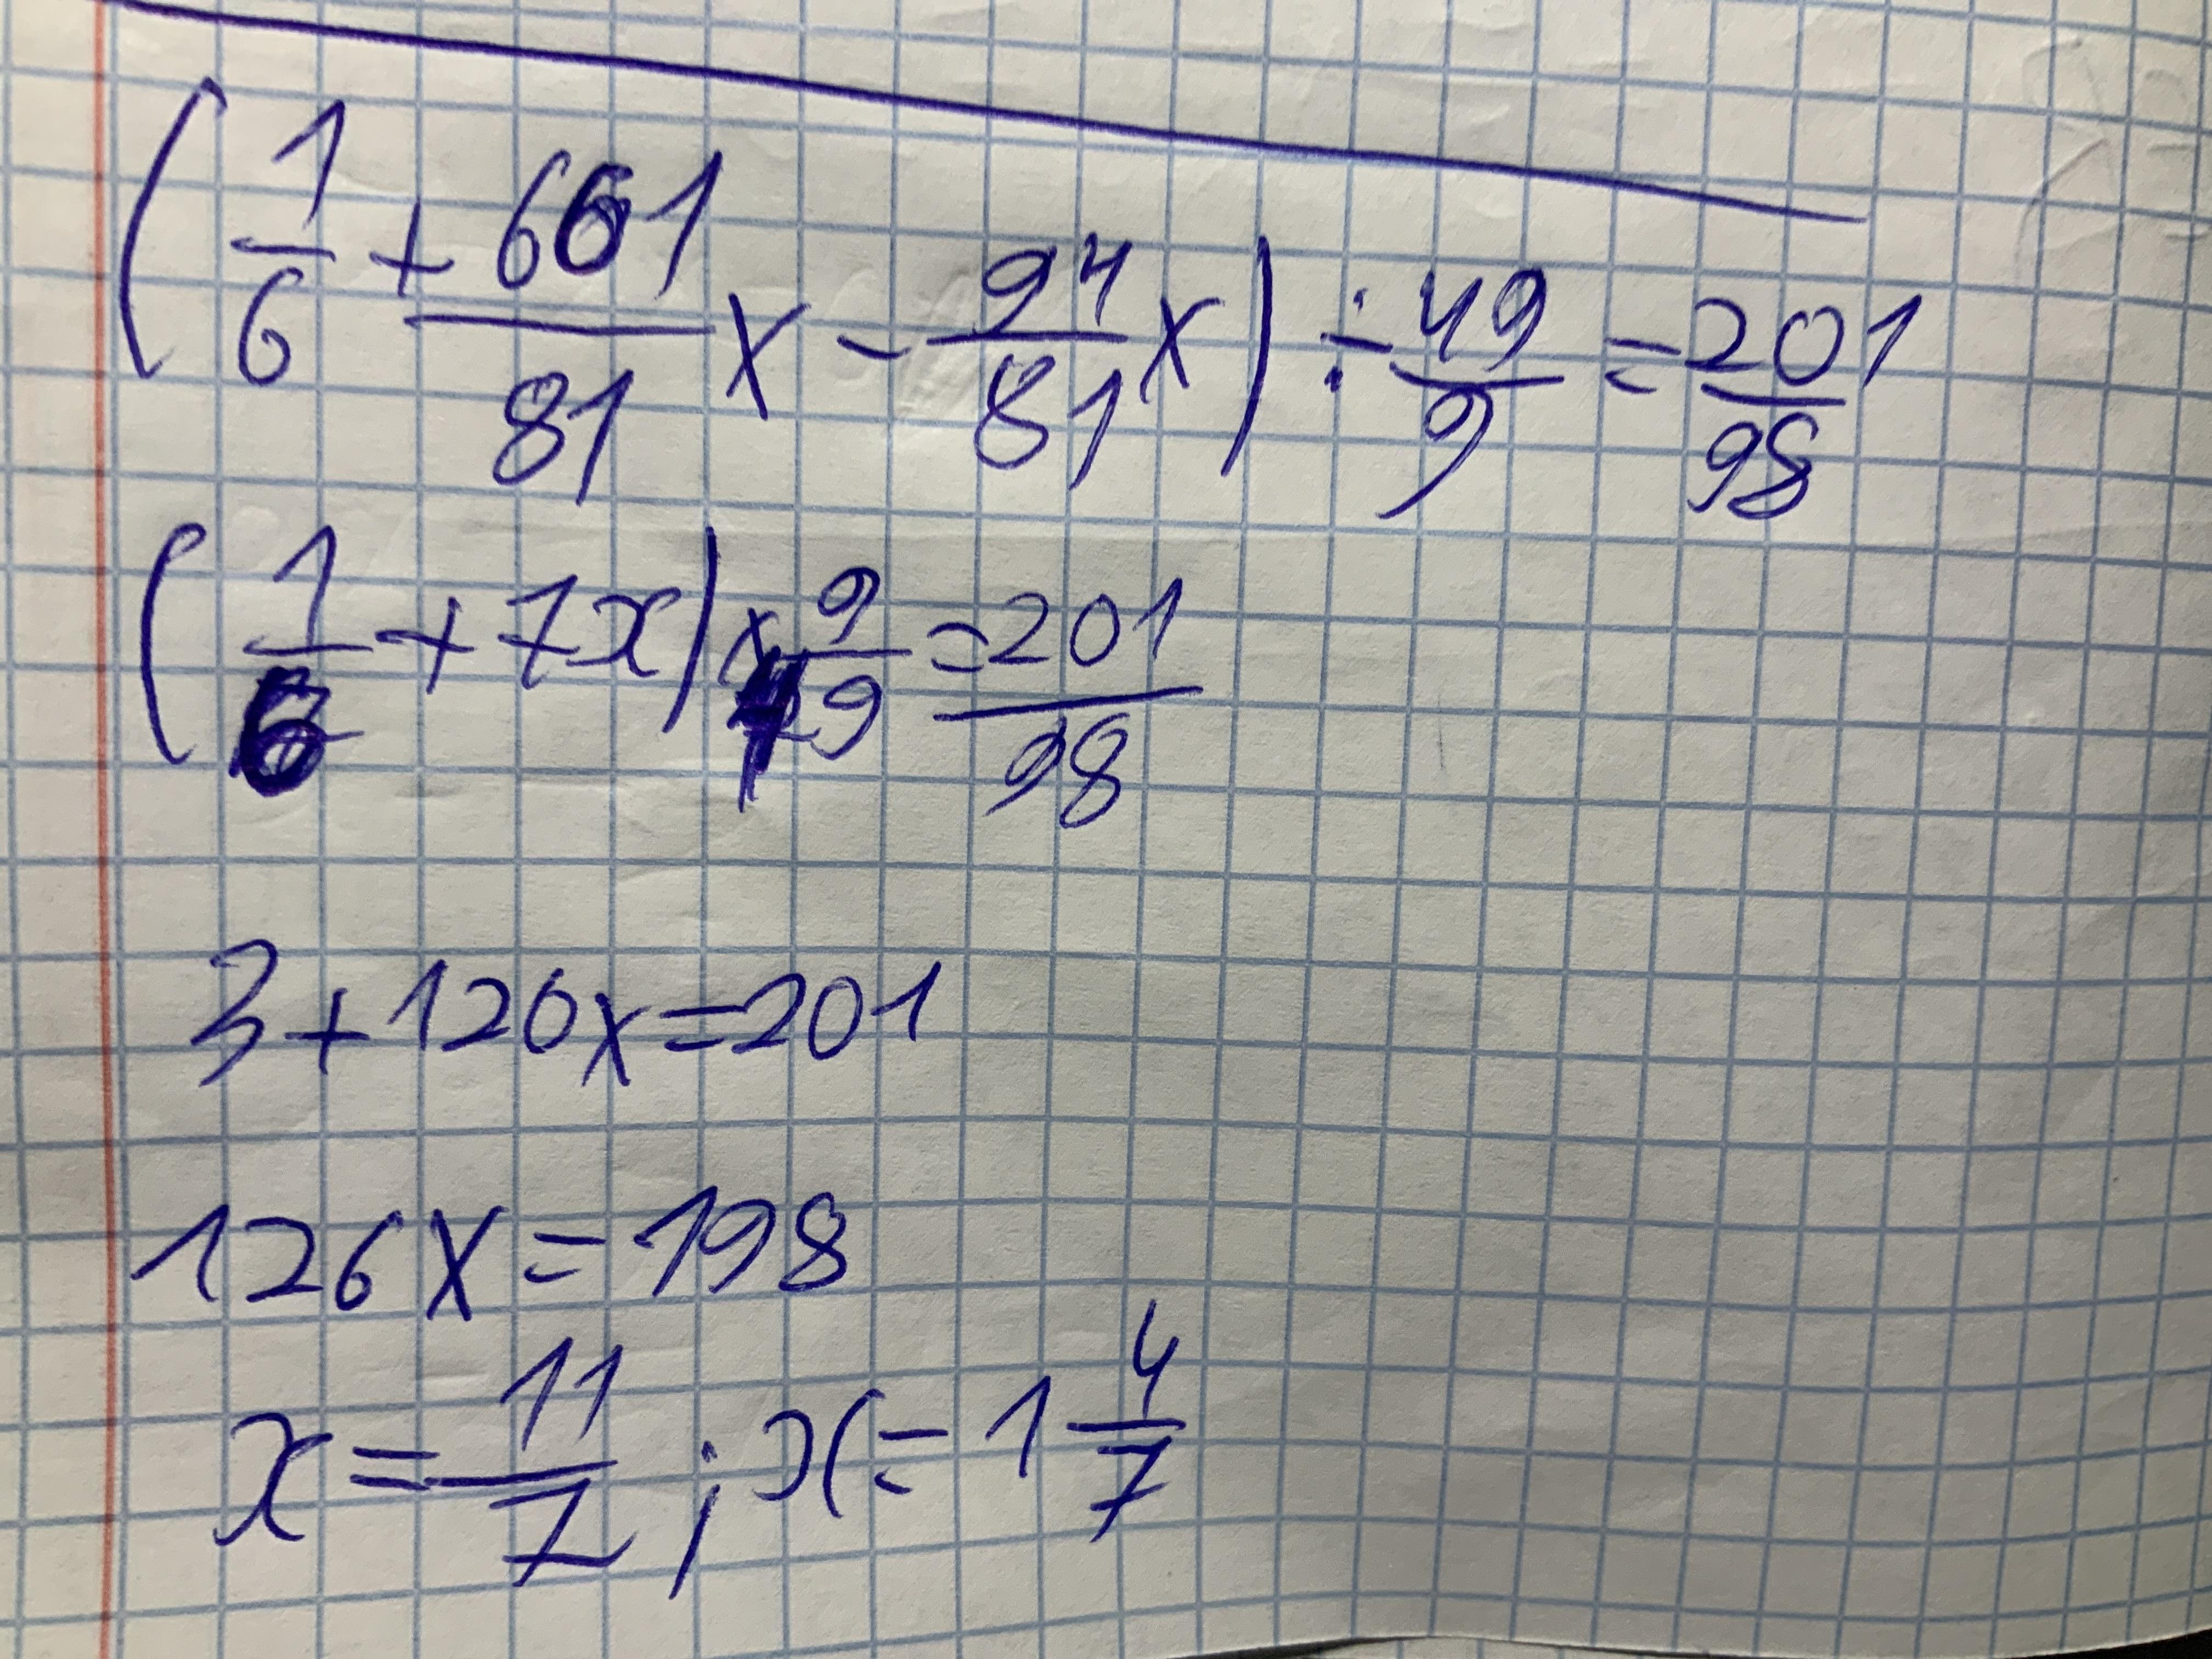 (1/6 + 661/81 x - 94/81 x) ÷ 49/9 = 201/98
(1/6 + 7x) x 9/49 = 201/98
3 + 126x = 201
126x = 198
x = 11/7 ; x = 1 4/7